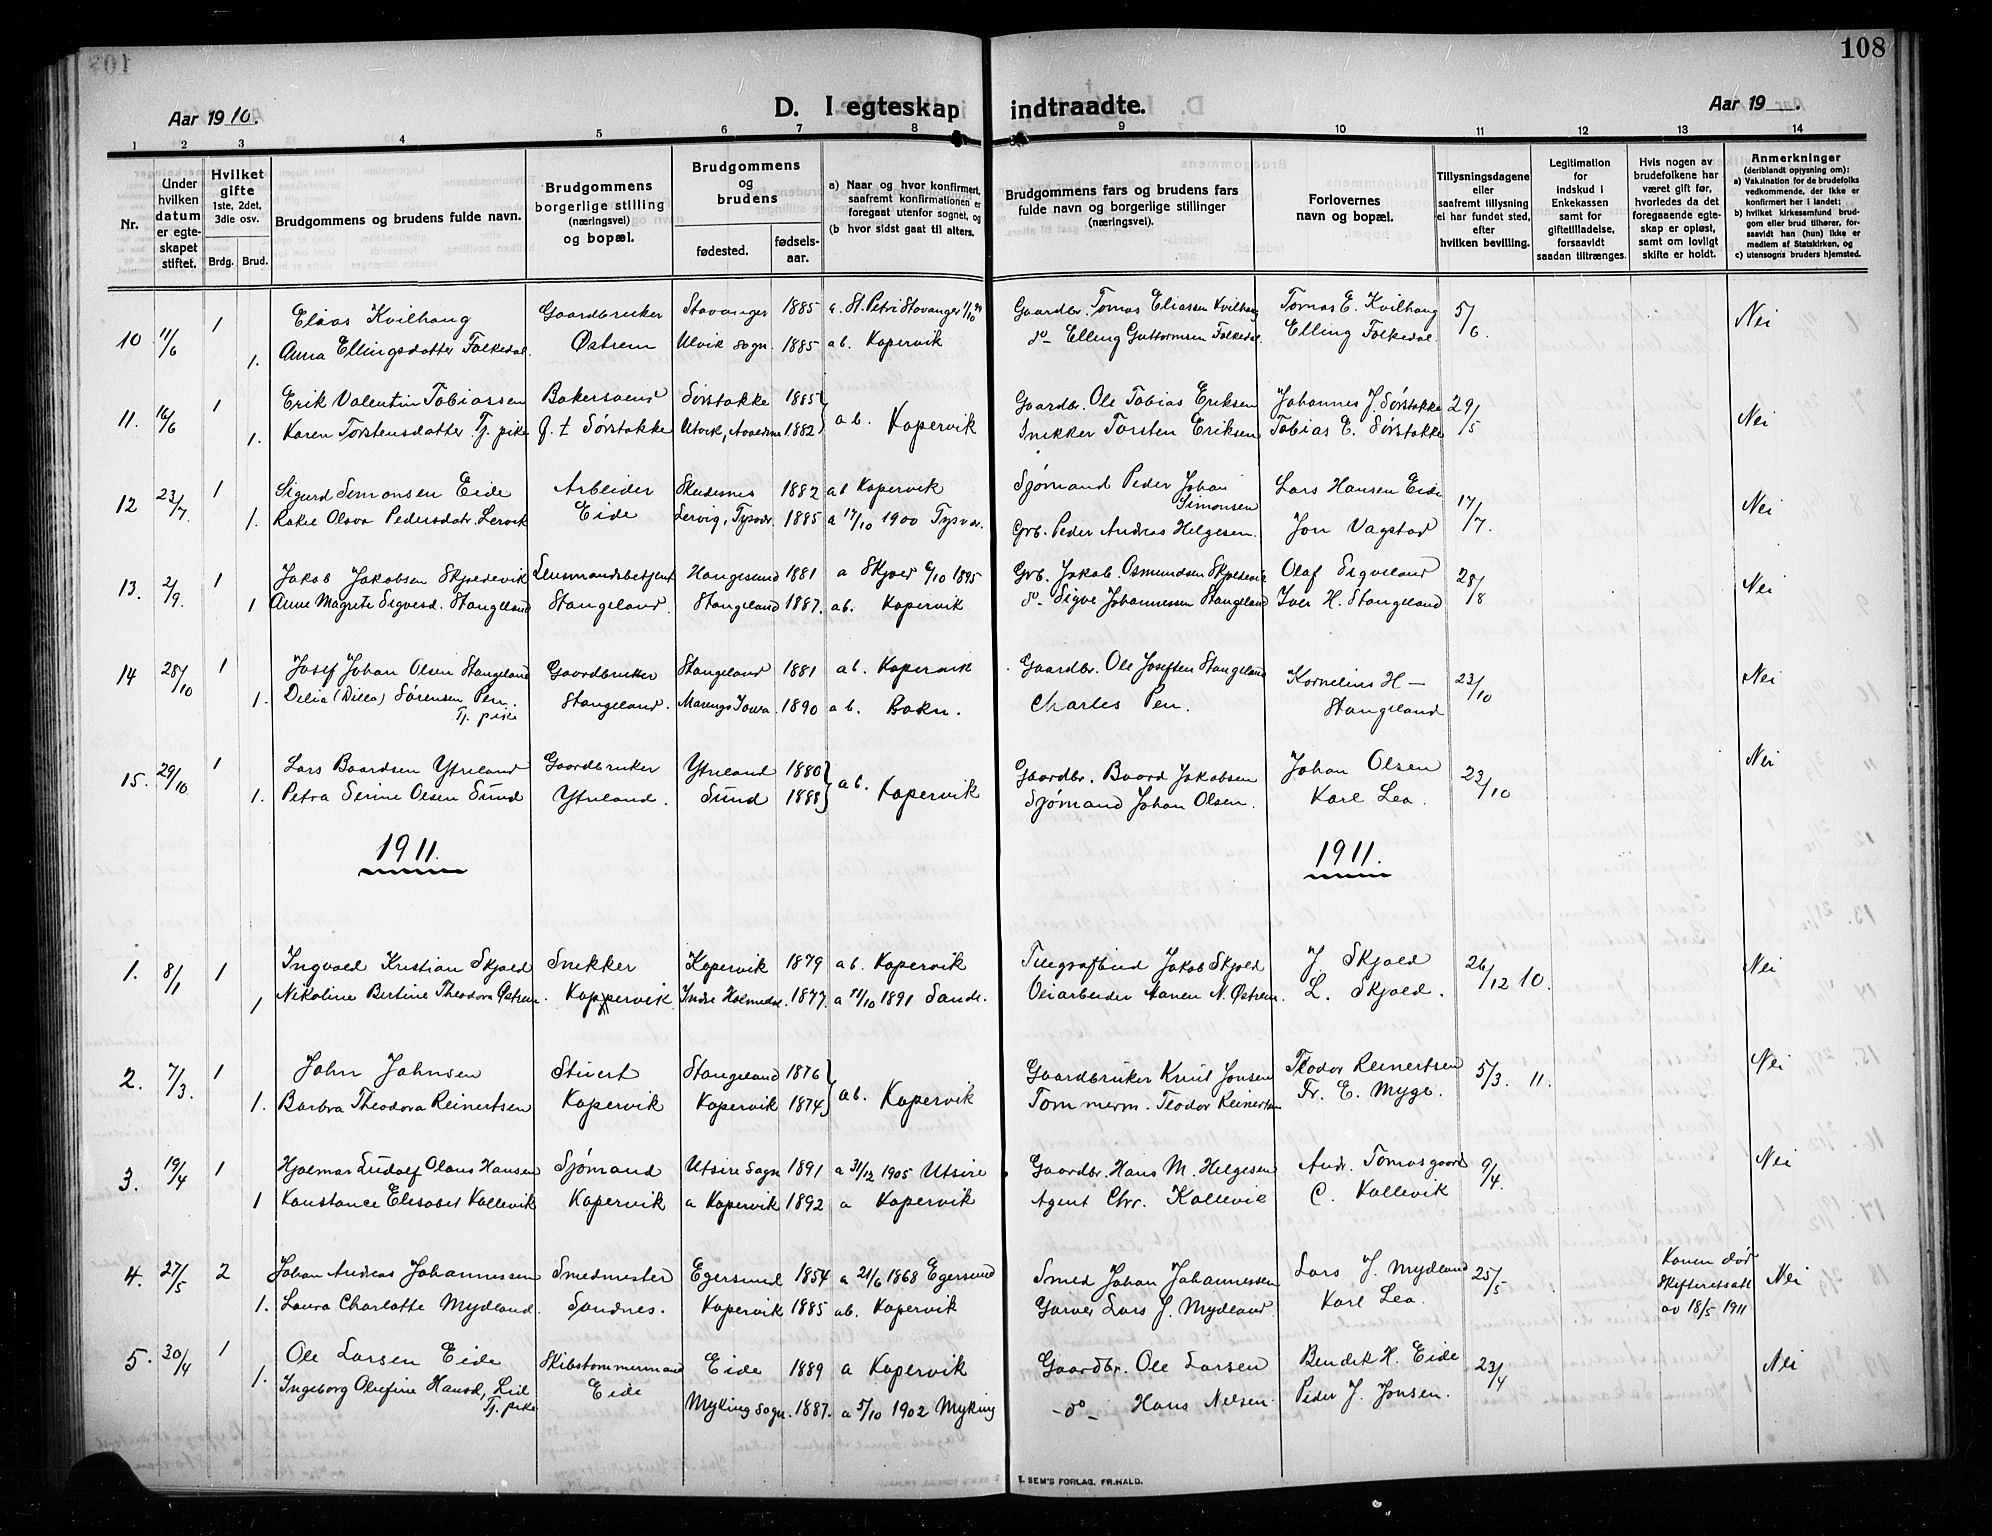 108
Aar 1910.
D. I egteskap indtraadte.
Aar 19
1 2 3 4 5 6 7 8 9 10 11 12 13 14
Nr.
Under hvilken datum er egteskapet stiftet.
Hvilket gifte 1ste, 2det, 3die osv.
Brdg. Brud.
Brudgommens og brudens fulde navn.
Brudgommens borgerlige stilling (næringsvei) og bopæl.
Brudgommens og brudens
fødested.
fødsels-aar.
a) Naar og hvor konfirmert, saafremt konfirmationen er foregaat utenfor sognet, og
(b hvor sidst gaat til alters.
Brudgommens fars og brudens fars fulde navn og borgerlige stillinger (næringsvei).
Forlovernes navn og bopæl.
Tillysningsdagene eller saafremt tillysning ei har fundet sted, efter hvilken bevilling.
Legitimation for indskud i Enkekassen samt for giftetilladelse, forsaavidt saadan tiltrænges.
Hvis nogen av brudefolkene har været gift før, hvorledes da det foregaaende egteskap er opløst, samt om lovligt skifte er holdt.
Anmerkninger (deriblandt oplysning om):
a) Vaksination for de brudefolks vedkommende, der ikke er konfirmert her i landet;
b) hvilket kirkesamfund brudgom eller brud tilhører, forsaavidt han (hun) ikke er medlem av Statskirken, og
c) utensogns bruders hjemsted.
10 11/6 1 Elias Kvilhaug Gaardbruker Stavanger 1885 a. St. Petri Stavanger Gaardbr. Tomas Eliassen Kvilhaug Tomas E. Kvilhaug 5/6. Nei
1. Anna Ellingsdatter Folkedal. Østrem Ulvik sogn. 1885 ab. Kopervik do Elling Guttormsen Folkedal. Elling Folkedal
11. 16/6 1 Erik Valentin Tobiassen Bakersvend Sørstokke 1885 ab. Kopervik Gaardbr. Ole Tobias Eriksen Johannes J. Sørstokke 29/5 Nei
1. Karen Torstensdatter Tj. pike G. t Sørstokke Utvik, 1882 Snikker Torsten Eriksen Tobias E. Sørstokke
12 23/7. 1 Sigurd Simonsen Eide Arbeider Skudesnes 1882 ab Kopervik Sjømand Peder Johan Simonsen Lars Hansen Eide 17/7. Nei
1. Rakel Olava Pedersdatr. Lervik Eide Lervig, Tysvær. 1885 a 17/10 1900 Tysvær. Grb. Peder Andreas Helgesen. Jon Vagstad
13. 2/9. 1 Jakob Jakobsen Skjoldevik Lensmandsbetjent Haugesund 1881 a Skjold 6/10 1895 Grb. Jakob Osmundsen Skjoldevik Olaf Sigveland 28/8 Nei
1 Anne Magrete Sigvesd. Stangeland Stangeland. Stangeland 1887. ab. Kopervik do. Sigve Johannessen Stangeland Iver H. Stangeland
14 28/10 1 Josef Johan Olsen Stangeland Gaardbruker Stangeland 1881 ab. Kopervik Gaardbr. Ole Josefsen Stangeland Kornelius H— 23/10 Nei
1. Delia (Dilla) Sørensen Pen. Tj. pike Stangeland. Marengo Iowa. 1890 ab. Bokn. Charles Pen. Stangeland
15. 29/10 1 Lars Baardsen Ytreland Gaardbruker Ytreland 1880 ab. Kopervik Gaardbr. Baard Jakobsen Johan Olsen 23/10 Nei
1. Petra Serine Olsen Sund Ytreland. Sund 1888 Sjømand Johan Olsen. Karl Lea.
1911. 1911.
1. 8/1 1 Ingvald Kristian Skjold Snikker Kopervik 1879 ab. Kopervik Telegrafbud Jakob Skjold J Skjold 26/12 10. Nei
1 Nikoline Bertine Theodora Østrem. Kopervik Indre Holmedal. 1877. a 11/10 1891 Sande. Veiarbeider N. Østrem. L. Skjold.
2. 7/3. 1 John Johnsen Stuert Stangeland 1876 ab. Kopervik Gaardbruker Knut Jonsen Teodor Reinertsen 5/3. 11. Nei
1. Barbra Theodora Reinertsen Kopervik Kopervik 1874 Tømmerm. Teodor Reinertsen Fr. E. Myge.
3. 19/4 1 Hjalmar Ludolf Olaus Hansen Sjømand Utsire Sogn 1891 a 31/12 1905 Utsire Gaardbr. Hans M. Helgesen Andr. Tomasgaard 9/4. Nei
1 Konstance Elisabet Kallevik Kopervik a Kopervik 1892 a Kopervik Agent Chr. Kallevik C. Kallevik
4. 27/5 2 Johan Andreas Johannessen Smedmester Egersund 1854 a 21/6 1868 Egersund Smed Johan Johannessen Lars J. Mydland 25/5 Konen død Skifteretsatt av 18/5 1911 Nei
1. Laura Charlotte Mydland. Sandnes. Kopervik 1885 ab. Kopervik Garver Lars J. Mydland Karl Lea.
5. 30/4 1 Ole Larsen Eide Skibstømmermand Eide 1889 a Kopervik Gaardbr. Ole Larsen Bendik H. Eide 23/4 Nei
1. Ingeborg Olufine Hansd, Lid Tj. pike Eide Myking Sogn. 1887. a 5/10 1902 Myking -do- Hans Nelsen. Peder J. Jonsen.
E. SEM'S FORLAG, FR.HALD.